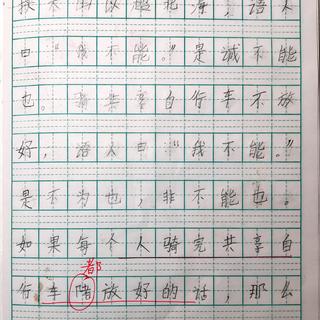 以超北海，语人
曰“我不能。”是诚不能
也。骑共享自行车不放
好，语人曰“我不能。”
是不为也，非不能也。
如果每个人骑完共享自
都
行车放好的话，那么